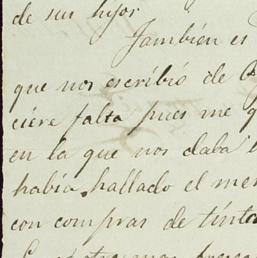 de sus hijos
También es
que nos escribió de
ciere falta pues me
en la que nos daba
había hallado el
con compras de